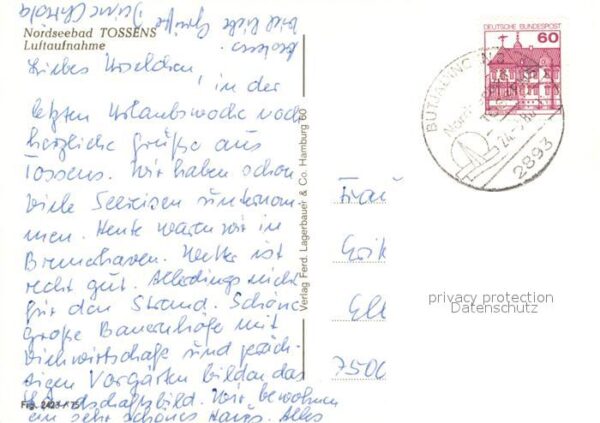 Nordseebad TOSSENS
Luftaufnahme
Liebes Urselchen,
in der
letzten Urlaubswoche noch
herzliche Grüße aus
Tossens. Wir haben schon
viele Seereisen unternom-
men. Heute waren wir in
Bremerhaven. Wetter ist
recht gut. Allerdings nicht
für den Strand. Schöne
große Bauernhöfe mit
Viehwirtschaft und präch-
tigen Vorgärten bilden das
Landschaftsbild. Wir bewohnen
ein sehr schönes Haus. Alles
bestens.
viele liebe Grüße
Verlag Ferd. Lagerbauer & Co. Hamburg 60
DEUTSCHE BUNDESPOST
60
BUTJADINGEN
2893
Frau
Erik
Ell
7500
privacy protection
Datenschutz